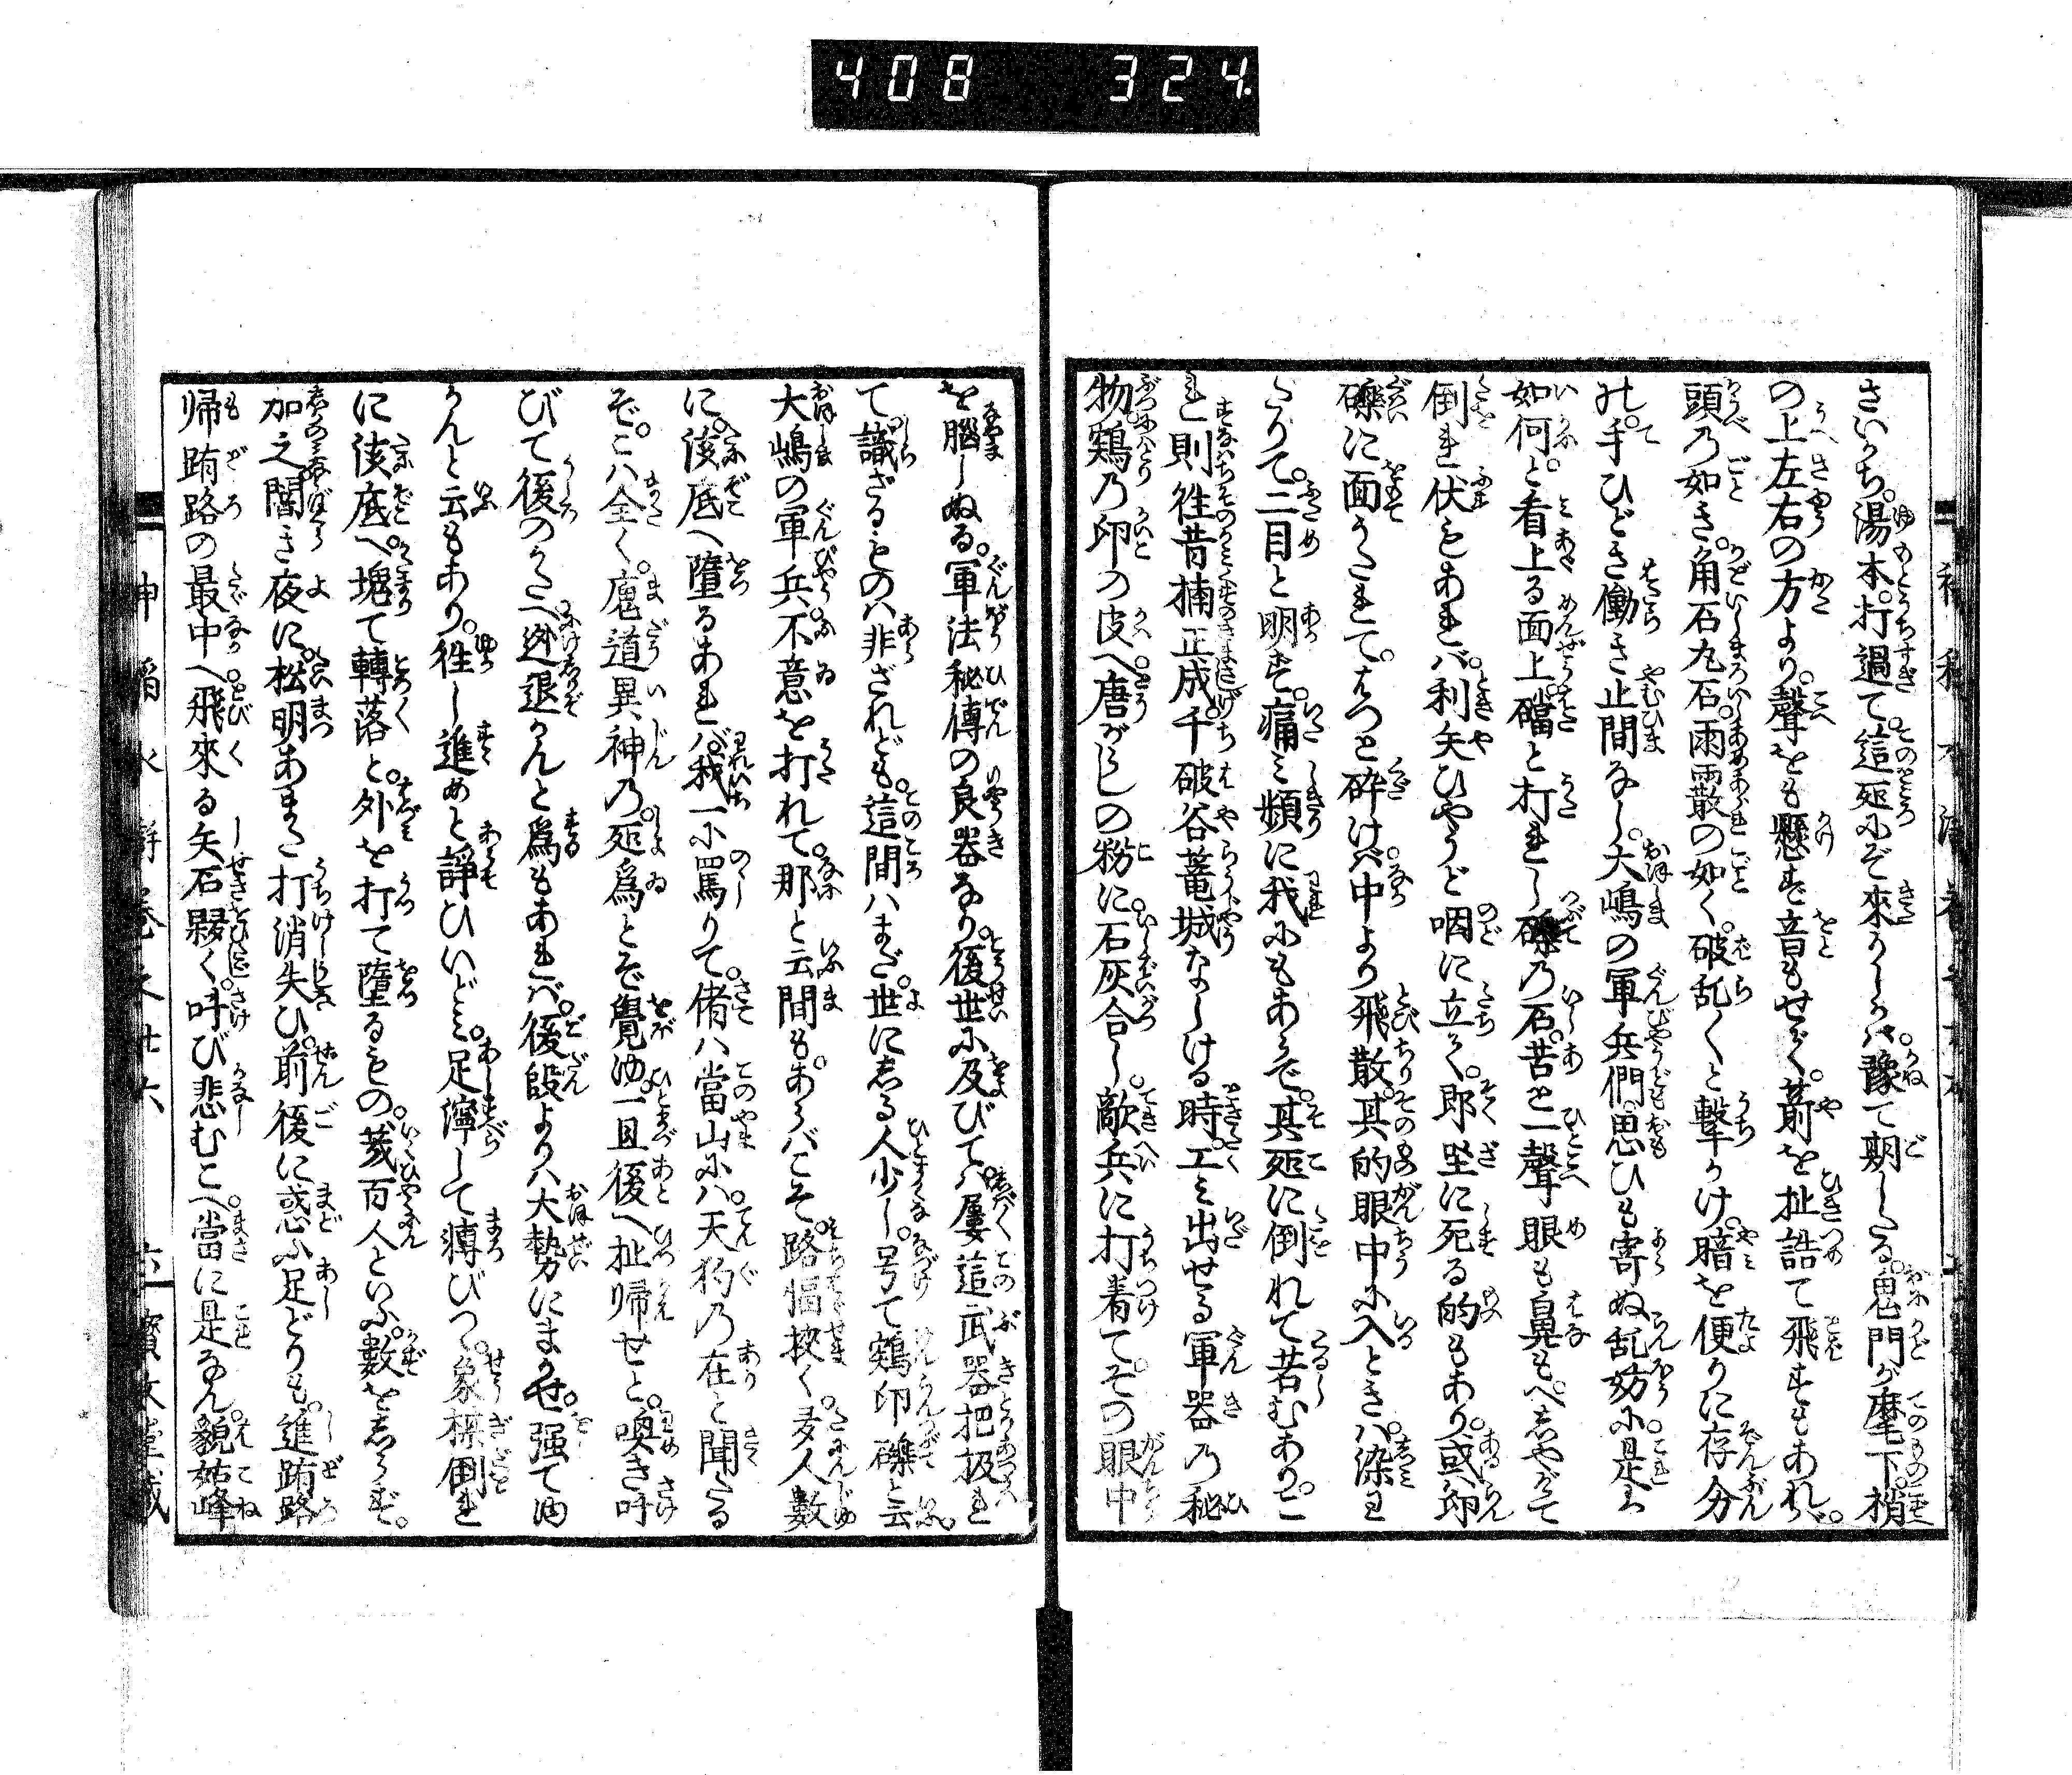 408 324
さいかち。湯本。打過て。這処にぞ來かゝしかバ。豫て期したる。鬼門が麾下。梢
の上左右の方より。聲をも懸ず音もせで。箭を扯詰て飛すもあれバ。
頭乃如き。角石丸石。雨霰の如く。破乱〱と撃かけ。暗を便りに存分
に。手ひどき働き止間なし。大嶋の軍兵們。思ひも寄ぬ乱妨に是ハ
如何と。看上る面上。礑と打れし礫乃石。苦と一聲眼も鼻も。へしやげて
倒れ伏もあれバ。利矢ひやうど咽に立て。即坐に死る的もあり。或ハ卵
礫に面うたれて。はつと砕けバ。中より飛散。其的眼中に入ときハ。染わ
たりて。二目と明ず。痛み頻に我にもあらで。其処に倒れて苦むあり。こ
れ則往昔楠正成。千破谷篭城なしける時。工み出せる軍器乃秘
物。鶏乃卵の皮へ。唐がらしの粉に。石灰合し。敵兵に打着て。その眼中
を腦しぬる。軍法秘傳の良器なり。後世に及びてハ。屡這武器把扱れ
て。識ざるものハ非ざれども。這間ハまだ。世にしる人少し。号て鶏卵礫と云。
大嶋の軍兵。不意を打れて。那と云間も。あらバこそ。路幅挾く。夛人數
に。渓底へ墮るあれバ。我一に罵りて。偖ハ當山にハ。天狗乃在と聞たる
ぞ。こハ全く。魔道異神乃。処爲とぞ覺ゆ。一旦後へ扯歸せと。喚き叫
びて後のかたへ。迯退かんと爲もあれバ。後段よりハ大勢にまかせ。强て由
かんと云もあり。徃し進めと諍ひいどみ。足濘して轉びつゝ。象棋倒れ
に渓底へ。塊て轉落と。外を打て墮るもの。幾百人といふ。數をしらず。
加之闇き夜に。松明あまた打消失ひ。前後に惑ふ足どりも。進路
帰路の最中へ。飛來る矢石夥く。叫び悲むこゑ。當に是なん。藐姑峰
神稻水滸傳卷之廿六 六 寶文堂藏